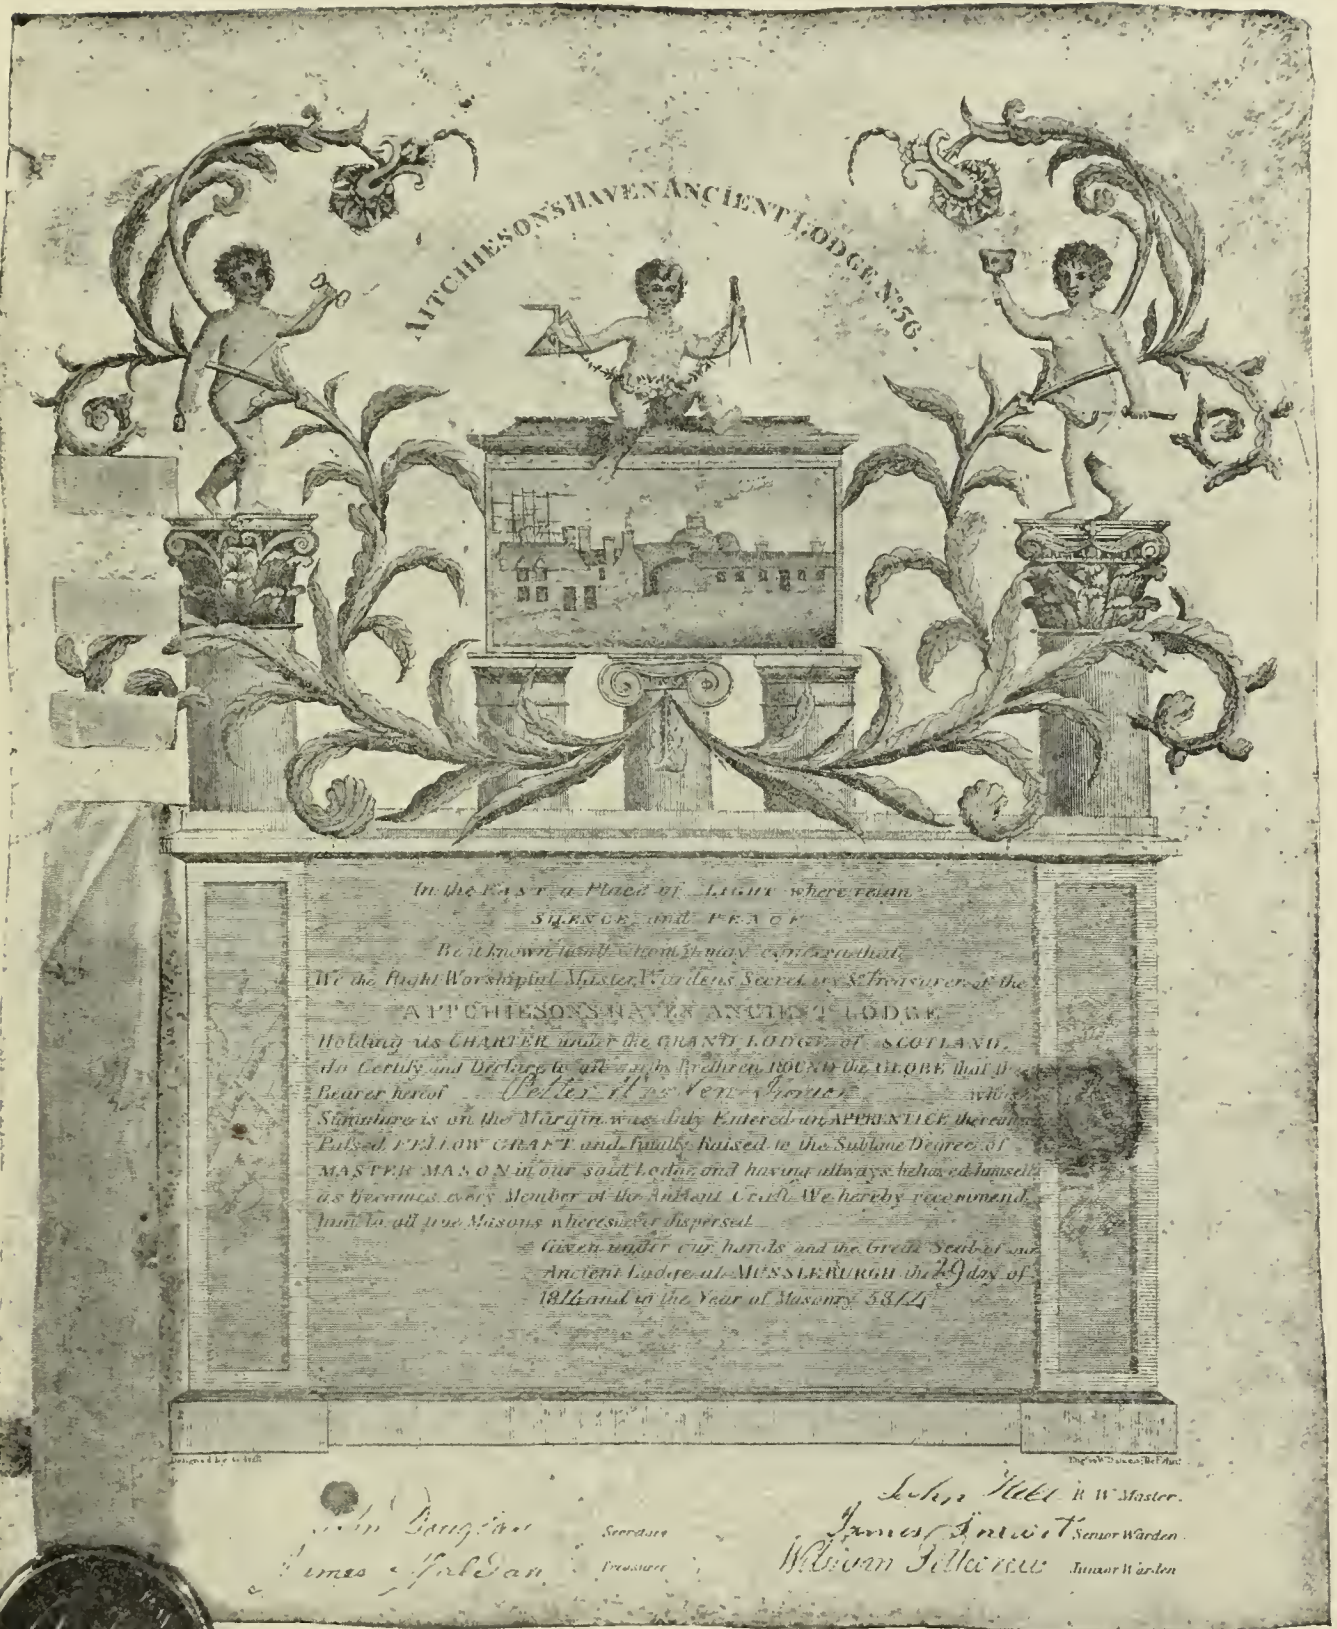 AITCHIESONSHAVEN ANCIENT LODGE No. 36.
In the EAST a Place of LIGHT where reign
SILENCE and PEACE
Be it known to all whom it may concern that
We the Right Worshipful Master, Wardens, Secretary & Treasurer of the
AITCHIESONSHAVEN ANCIENT LODGE
Holding us CHARTER under the GRAND LODGE of SCOTLAND,
do Certify and Declare to all Brethren ROUND the GLOBE that the
Bearer hereof Petter whose
Signature is on the Margin was duly Entered an APPRENTICE thereon
Passed FELLOW CRAFT and finally Raised to the Sublime Degree of
MASTER MASON in our said Lodge and having allways behaved himself
as becomes every Member of the Antient Craft We hereby recommend
him to all true Masons wheresoever dispersed
Given under our hands and the Great Seal of our
Ancient Lodge at MUSSLEBURGH the 29 day of
1814 and in the Year of Masonry 5814
Designed by
John R. W. Master.
John Douglas Secretary
James Senior Warden
James Treasurer
William Junior Warden